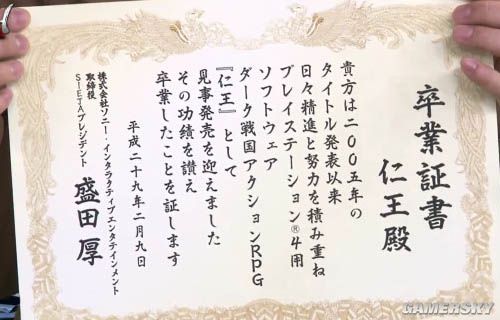 卒業証書
仁王殿
貴方は二〇〇五年の
タイトル発表以来
日々精進と努力を積み重ね
プレイステーション®4用
ソフトウェア
ダーク戦国アクションRPG
『仁王』として
見事発売を迎えました
その功績を讃え
卒業したことを証します
平成二十九年二月九日
株式会社ソニー・インタラクティブエンタテインメント
取締役
SIEJAプレジデント
盛田 厚
GAMERSKY